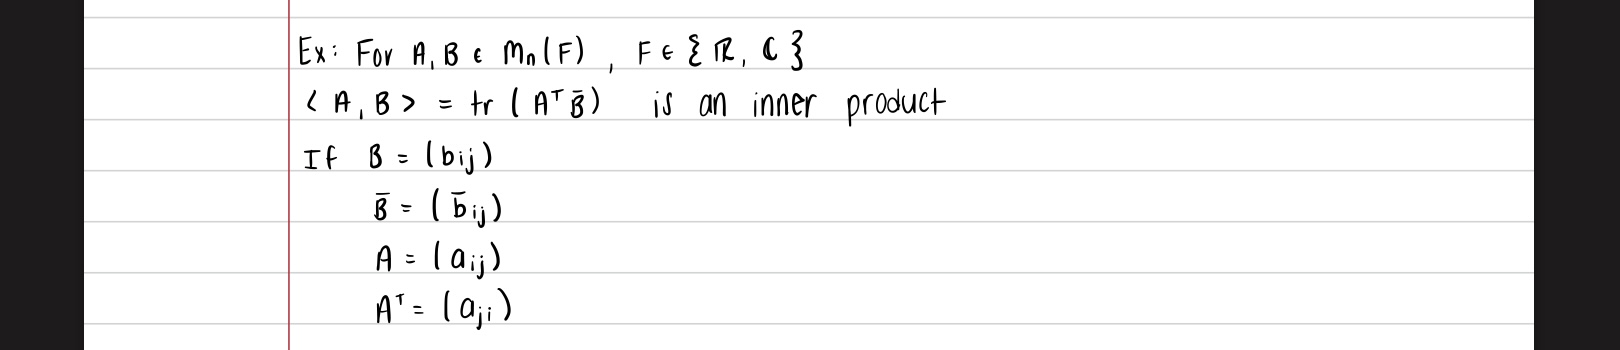 Ex: For A, B ∈ Mn(F), F ∈ {ℝ, ℂ}
<A, B> = tr (Aᵀ B̄) is an inner product
If B = (bij)
B̄ = (b̄ij)
A = (aij)
Aᵀ = (aji)